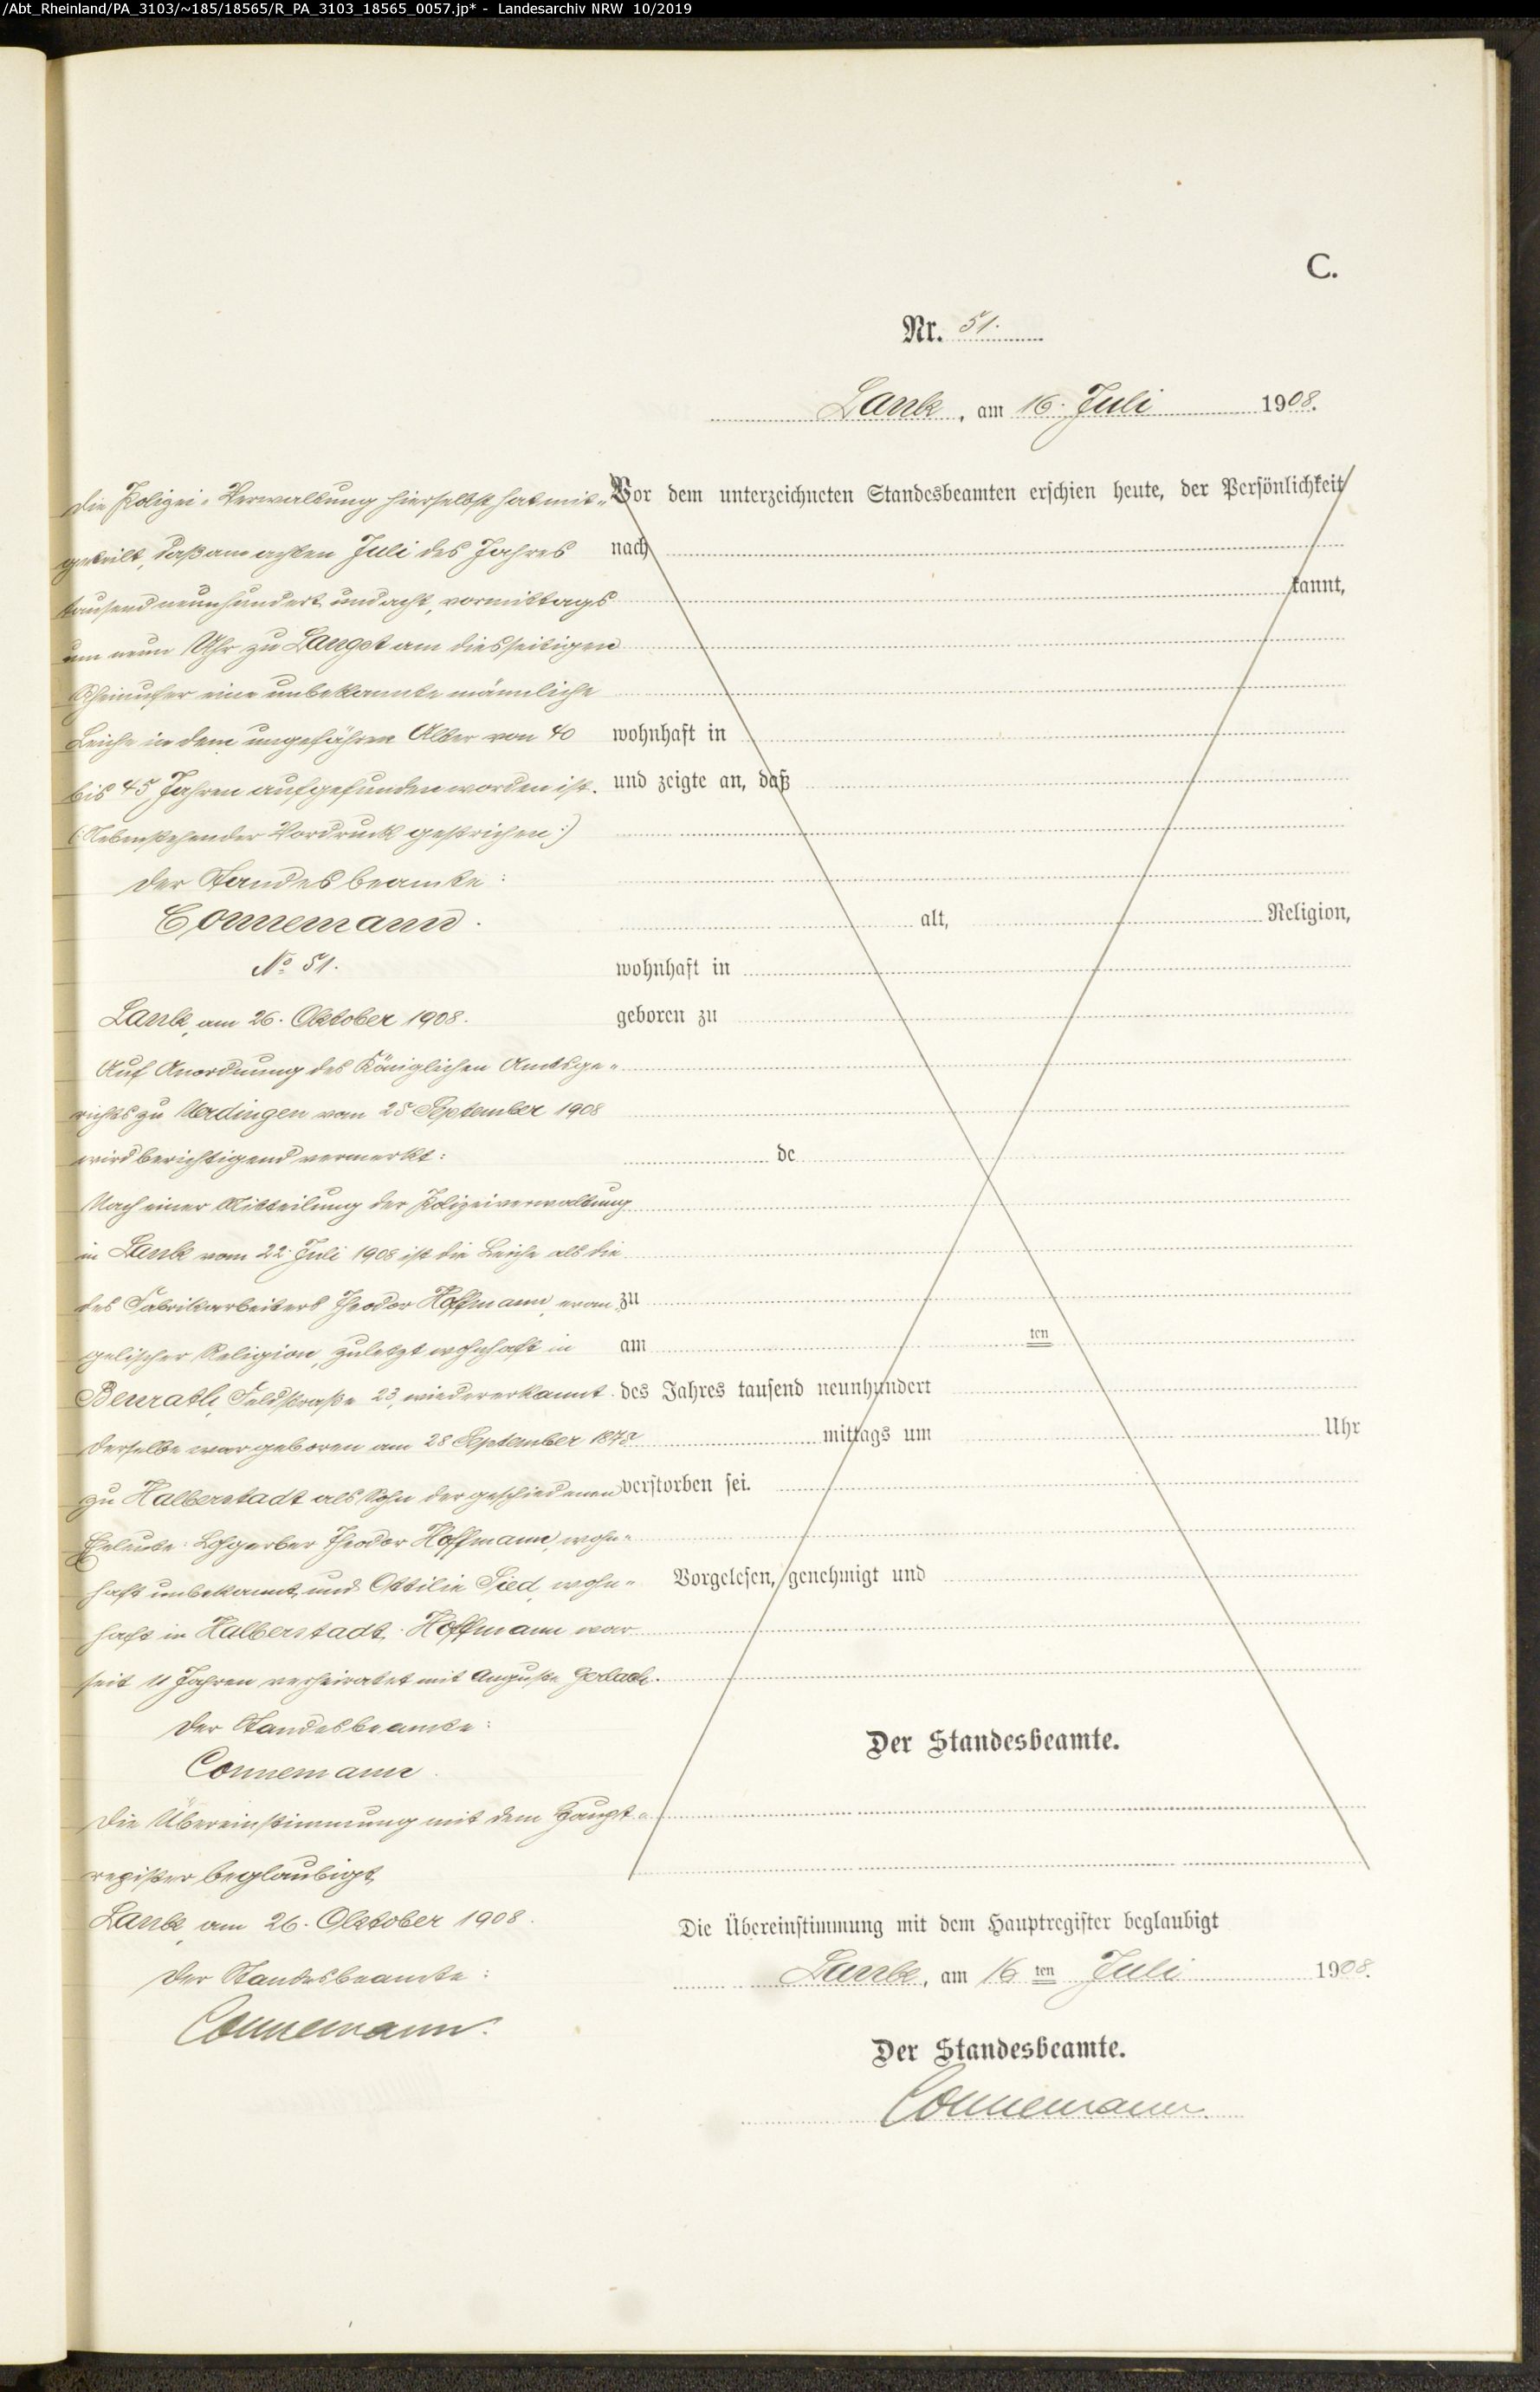 /Abt_Rheinland/PA_3103/~185/18565/R_PA_3103_18565_0057.jp* - Landesarchiv NRW 10/2019
C.
Nr. 51.
Lank, am 16. Juli 1908.
Die Polizei-Verwaltung hierselbst hat mit-
geteilt, daß am achten Juli des Jahres
tausend neunhundert und acht, vormittags
um neun Uhr zu Langst am diesseitigen
Rheinufer eine unbekannte männliche
Leiche in dem ungefähren Alter von 40
bis 45 Jahren aufgefunden worden ist.
(:Nebenstehender Vordruck gestrichen:)
Der Standesbeamte:
Connemann.
No 51.
Lank, am 26. Oktober 1908.
Auf Anordnung des Königlichen Amtsge-
richts zu Uerdingen vom 25 September 1908
wird berichtigend vermerkt:
Nach einer Mitteilung der Polizeiverwaltung
in Lank vom 22. Juli 1908 ist die Leiche als die
des Fabrikarbeiters Theodor Hoffmann, evan-
gelischer Religion, zuletzt wohnhaft in
Benrath, Feldstraße 23, wiedererkannt.
Derselbe war geboren am 28 September
zu Halberstadt als Sohn der geschiedenen
Eheleute: Lohgerber Theodor Hoffmann, wohn-
haft unbekannt, und Ottilie Sied, wohn-
haft in Halberstadt. Hoffmann war
seit 11 Jahren verheiratet mit Auguste Gerlach.
Der Standesbeamte:
Connemann.
Die Übereinstimmung mit dem Haupt-
register beglaubigt
Lank, am 26. Oktober 1908.
Der Standesbeamte:
Connemann.
Vor dem unterzeichneten Standesbeamten erschien heute, der Persönlichkeit
nach
kannt,
wohnhaft in
und zeigte an, daß
alt, Religion,
wohnhaft in
geboren zu
de
zu
am ten
des Jahres tausend neunhundert
mittags um Uhr
verstorben sei.
Vorgelesen, genehmigt und
Der Standesbeamte.
Die Übereinstimmung mit dem Hauptregister beglaubigt
Lank, am 16 ten Juli 1908.
Der Standesbeamte.
Connemann.